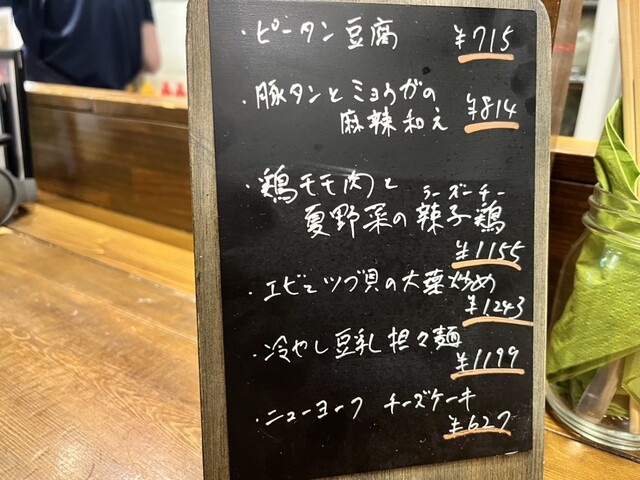 ・ピータン豆腐 ¥715
・豚タンとミョウガの
麻辣和え ¥814
・鶏モモ肉と
ラーズーチー
夏野菜の辣子鶏
¥1155
・エビとツブ貝の大葉炒め
¥1243
・冷やし豆乳担々麺
¥1199
・ニューヨーク チーズケーキ
¥627